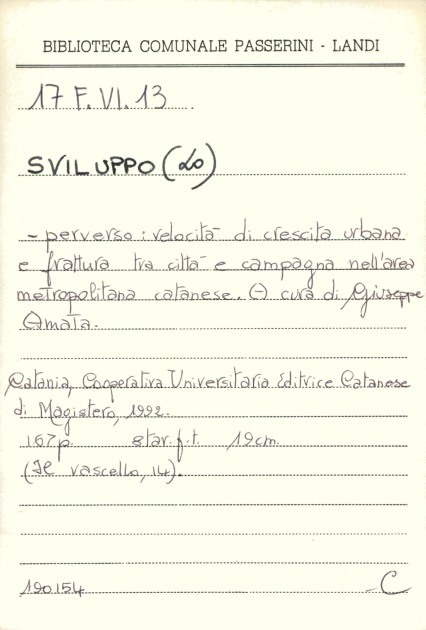 BIBLIOTECA COMUNALE PASSERINI - LANDI
17 F. VI. 13
SVILUPPO (Lo)
- perverso: velocità di crescita urbana
e frattura tra città e campagna nell'area
metropolitana catanese. A cura di Giuseppe
Amata.
Catania, Cooperativa Universitaria Editrice Catanese
di Magistero, 1992.
167 p. 8 tav. f. t. 19 cm.
(Il vascello, 14).
190154
C